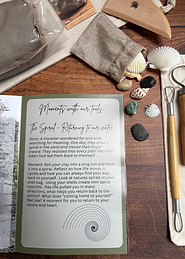 Moments with our tools
The Spiral - Returning to our centre
Story: A traveller wandered far and wide
searching for meaning. One day, they drew a
spiral in the sand and traced their finger
inward. They realised that every path they had
taken had led them back to themself.
Moment: Roll your clay into a long coil and form
it into a spiral. Reflect on how life moves in
cycles and how you can always find your way
back to yourself. Look at natures spirals in your
shell bag. Using your shells create mini spiral
imprints. Has life pulled you in many
directions, what helps you return back to the
centre? What does "coming home to yourself"
feel like? A moment for you to return to your
centre and heart.